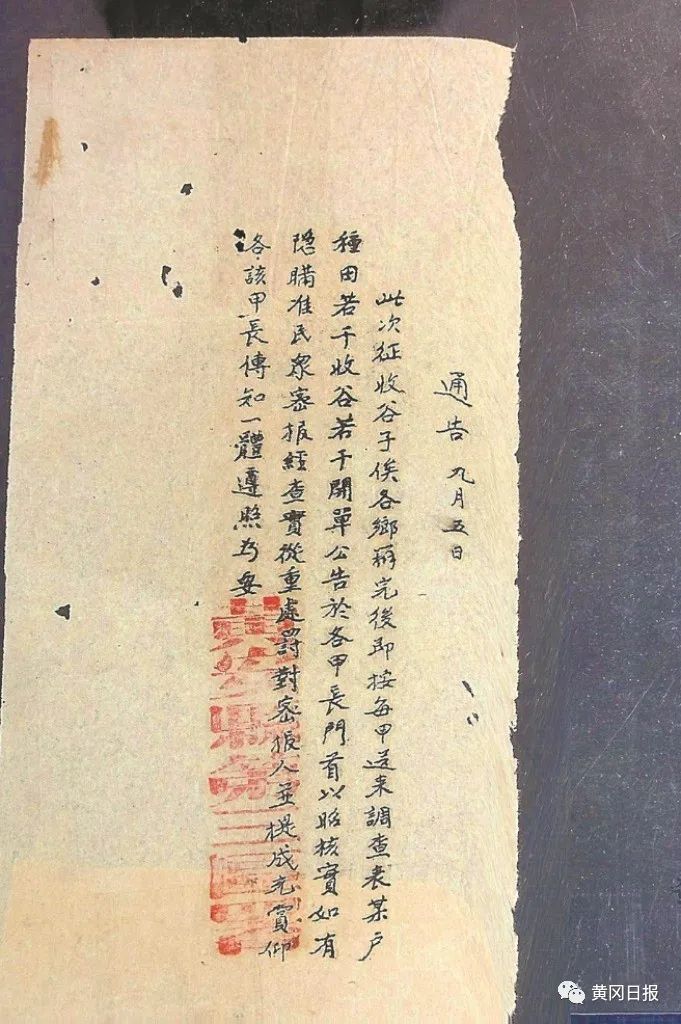 通告 九月五日
此次征收谷子俟各鄉辦完後即按每甲送来調查表某户
種田若干收谷若干開單公告於各甲長門首以昭核實如有
隐瞒准民眾密报經查實從重處罰對密报人並提成充賞仰
各該甲長傳知一體遵照为要
黄冈日报